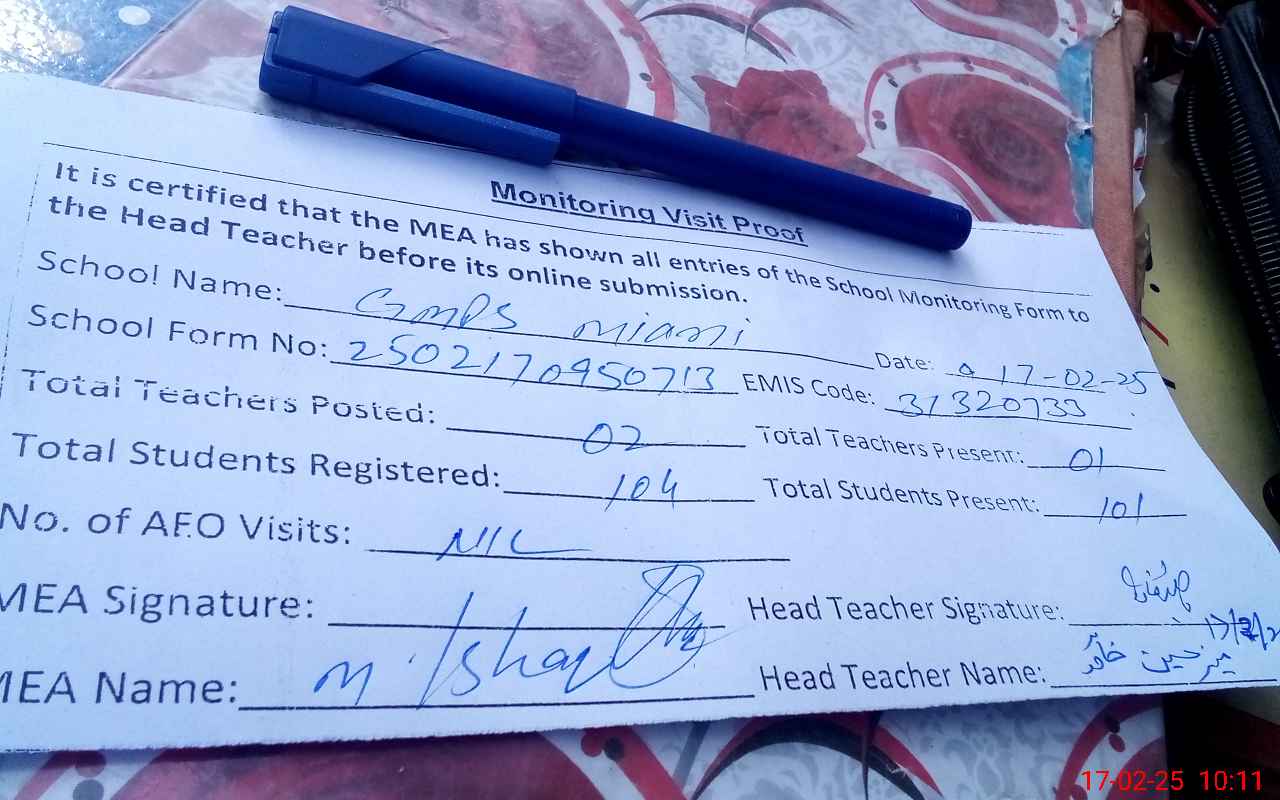 Monitoring Visit Proof
It is certified that the MEA has shown all entries of the School Monitoring Form to
the Head Teacher before its online submission.
School Name: GMPS Miani Date: 17-02-25
School Form No: 2502170950713 EMIS Code: 31320733
Total Teachers Posted: 02 Total Teachers Present: 01
Total Students Registered: 104 Total Students Present: 101
No. of AEO Visits: NIL
MEA Signature: Head Teacher Signature:
17/2/2
MEA Name: M. Ishaq Head Teacher Name:
17-02-25 10:11